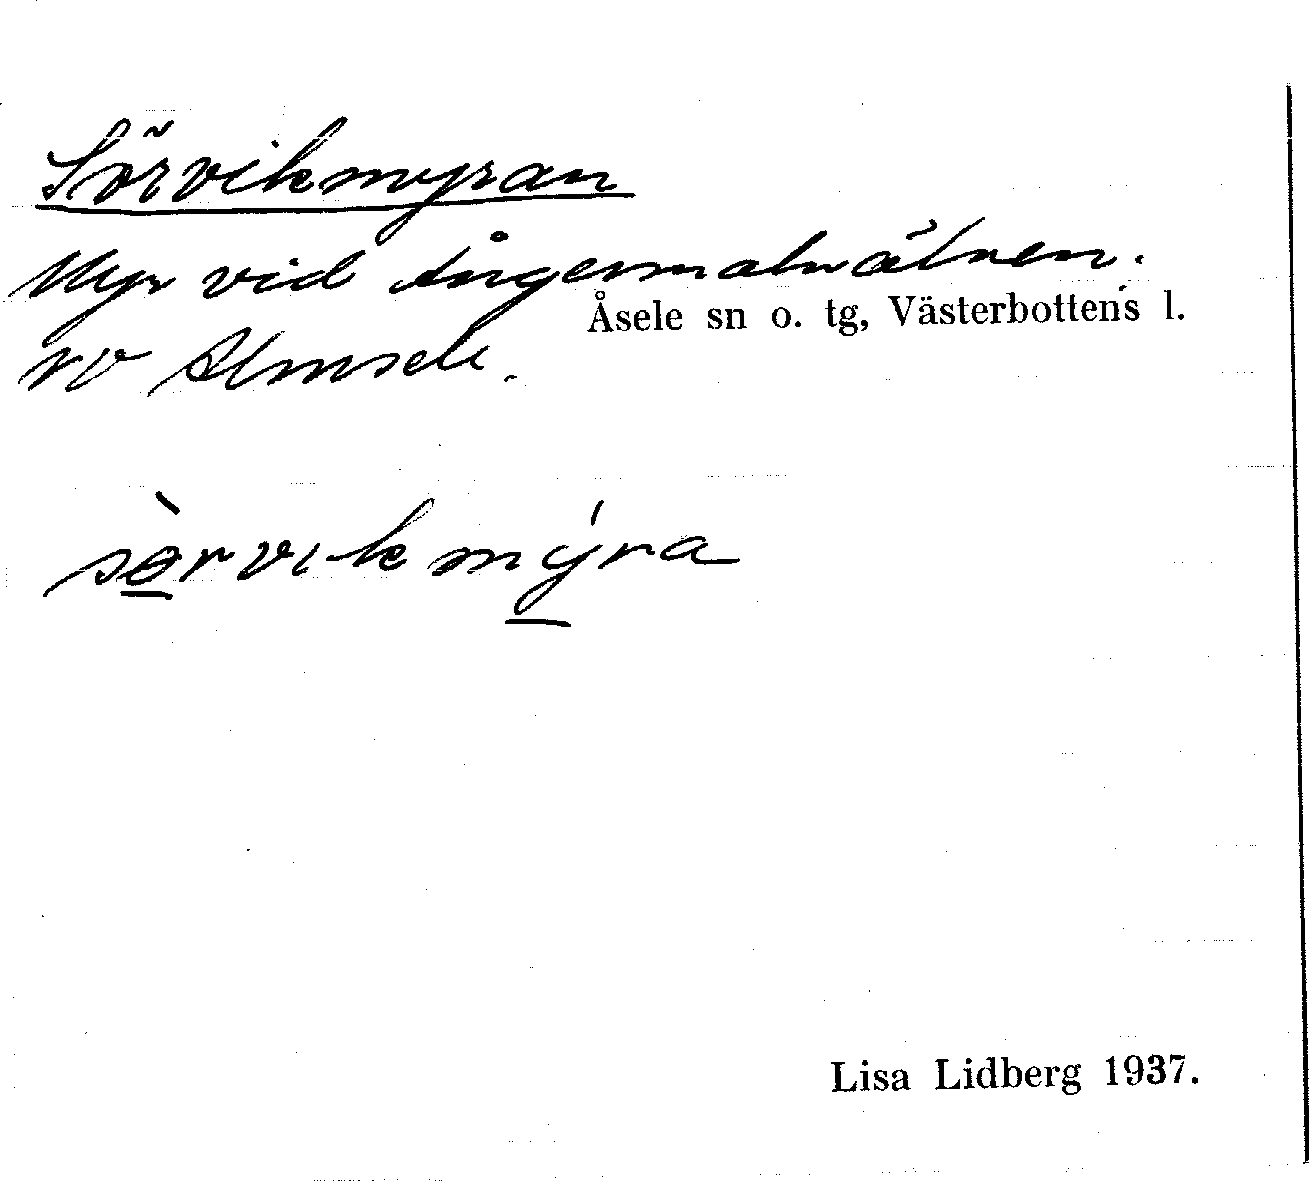 Sörvikmyran
Myr vid Ångermanälven.
Åsele sn o. tg, Västerbottens l.
nv Almsele.
sörvikmýra
Lisa Lidberg 1937.